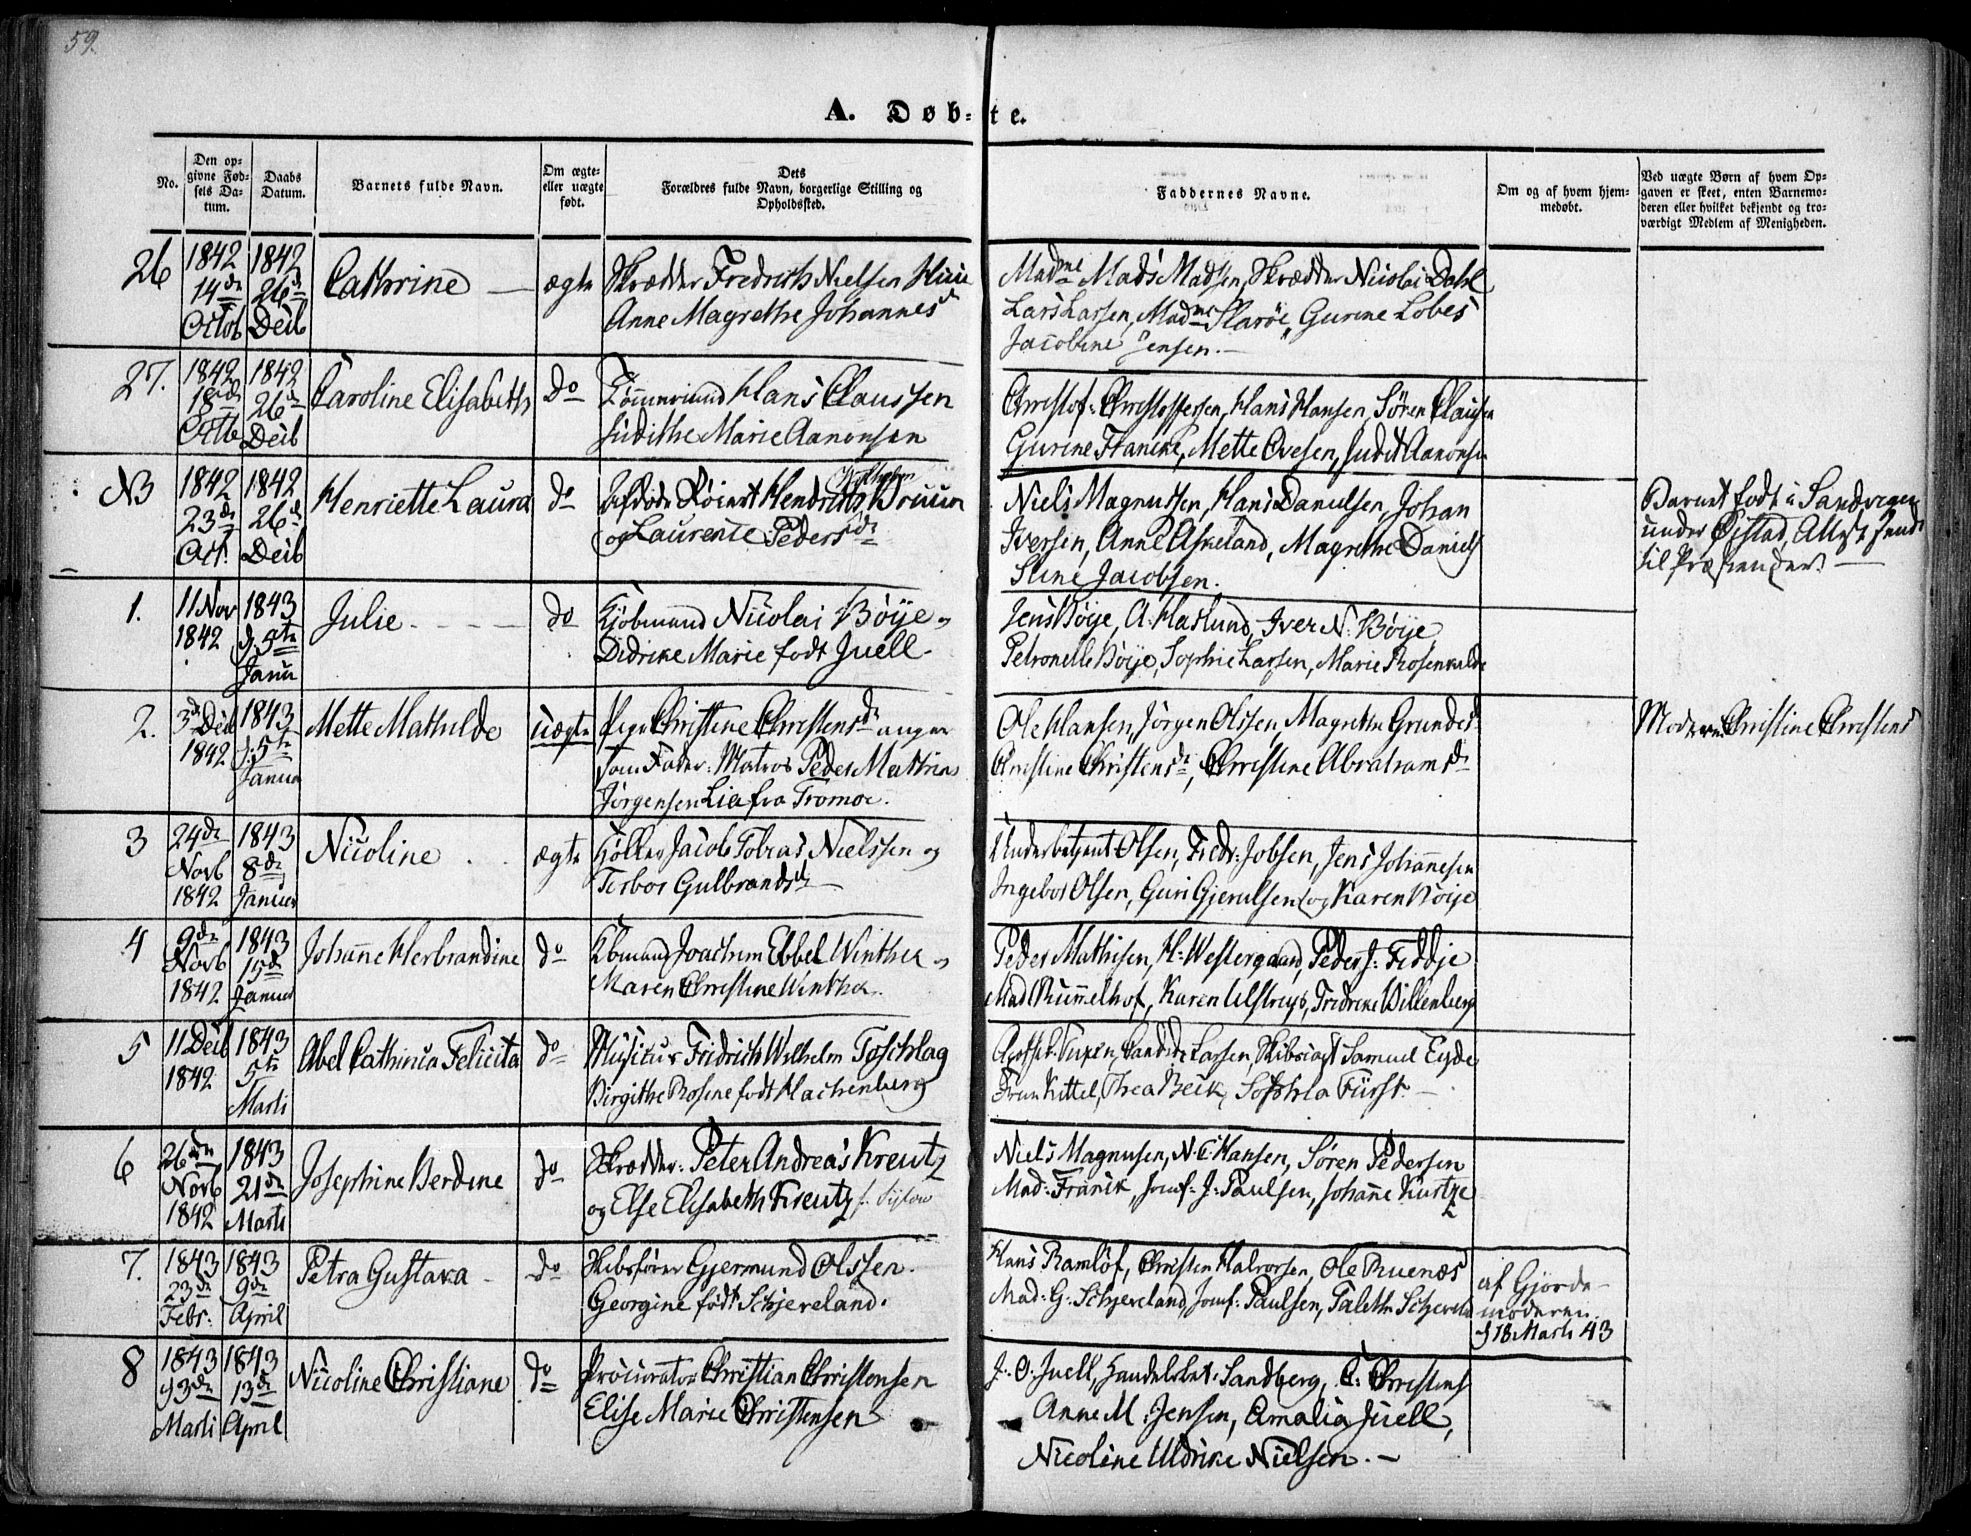 59.
A. Døb-te.
No.
Den op-
givne Fød-
sels Da-
tum.
Daabs
Datum.
Barnets fulde Navn.
Om ægte-
eller uægte
født.
Dets
Forældres fulde Navn, borgerlige Stilling og
Opholdssted.
Faddernes Navne.
Om og af hvem hjem-
medøbt.
Ved uægte Børn af hvem Op-
gaven er skeet, enten Barnemo-
deren eller hvilket bekjendt og tro-
værdigt Medlem af Menigheden.
26
1842
14de
Octob
1842
26d
Decb
Cathrine
ægte
Skrædder Fredrich Nielsen
Anne Magrethe Johannesd
Madme Mads Madsen, Skrædder Nicolai Dahl
Lars Larsen, Madme Skarøe, Gurine Lobes
Jacobine Jensen.
27.
1842
18de
Octb
1842
26d
Decb
Caroline Elisabeth
do
Tømmermand Hans Claussen
Judithe Marie Aanonsen
Christof: Christoffersen, Hans Hansen, Søren Clausen
Gurine Francke, Mette Ovesen, Judit Aanonsen
NB
1842
23de
Oct.
1842
26d
Decb
Henriette Laura
do
Afdøde Hendrich Bruun
og Laurence Pedersdr
Niels Magnussen, Hans Danielsen, Johan
Iversen, Anne Askeland, Magrethe Daniels
Stine Jacobsen.
Barnet født i Sandvigen
under Øistad, Attest sendt
til Præsten der.
1.
11 Nov
1842
1843
d. 5te
Janu
Julie
do
Kjøbmand Nicolai Bøije og
Didrike Marie født Juell
Jens Bøije, A. Haslund, Iver N. Bøije
Petronelle Bøije, Sophie Larsen, Marie Rosenkilde
2.
3d Decb
1842
1843
d. 5te
Janua
Mette Mathilde
uægte
Pige Christine Christensdr angiver
som Fader: Matros Peder Mathias
Jørgensen Lia fra Tromøe.
Ole Hansen, Jørgen Olssen, Magrethe Grundes
Christine Christensdr, Christine Abrahamsdr
Moderen Christine Christens
3
24de
Novb
1842
1843
8de
Januar
Nicoline
ægte
Møller Jacob Tobias Nielssen og
Terbor Gulbrandsdr
Underbetjent Olsen, Fredr: Jobsen, Jens Johannesen
Ingebor Olsen, Guri Gjerulsen og Karen Bøije
4
9de
Novb
1842
1843
15d
Januar
Johanne Herbrandine
do
Kbmand Joachim Ebbel Winther og
Maren Christine Winther.
Peder Mathisen, H. Westergaard, Peder J. Fiddje
Mad Rummelhof, Karen Ulstrup, Fredrike Willenberg
5
11 Decb
1842
1843
5te
Marti
Abel Cathinca Felicita
do
Musicus Fridrich Wilhelm Toschlag
Birgithe Rosine født Hachenberg
Tuxen, Candidt Larsen, Samuel Eyde
Frue Kittel, Thea Beck, Sophia Fürst.
6
26de
Novb
1842
1843
21de
Marti
Josephine Berdine
do
Skrædder: Peter Andreas Kreutz
og Else Elisabeth Kreutz
Niels Magnusen, N. C. Hansen, Søren Pedersen
Mad: Franck, Jomf. J. Paulsen, Johanne Kurtze
7.
1843
23de
Febr:
1843
9de
April
Petra Gustava
do
Skibsfører Gjermund Olssen.
Georgine født Schjereland.
Hans Ramløf, Christen Halvorsen, Ole Ruenæs
Mad: G. Schjereland, Jomf: Paulsen, Taleth Schjereland
af Gjorde-
moderen.
d 18 Marti 43
8
1843
13de
Marti
1843
13de
April
Nicoline Christiane
do
Procurator Christian Christensen
Elise Marie Christensen
J. O. Juell, Handelsbet: Sandberg, C. Christens
Anne M. Jensen, Amalia Juell,
Nicoline Uldrike Nielsen.